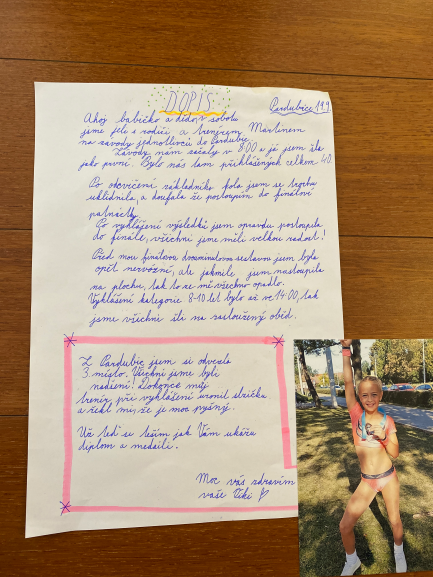 DOPIS
Pardubice 19.9.
Ahoj babičko a dědo, v sobotu
jsme jeli s rodiči a trenérem Martinem
na závody jednotlivců do Pardubic.
Závody nám začaly v 8:00 a já jsem šla
jako první. Bylo nás tam přihlášených celkem 40.
Po odcvičení základního kola jsem se trochu
uklidnila, a doufala že postoupím do finálové
patnáctky.
Po vyhlášení výsledků jsem opravdu postoupila
do finále, všichni jsme měli velkou radost!
Před mou finálovou sestavou jsem byla
opět nervózní, ale jakmile jsem nastoupila
na plochu, tak to ze mě všechno opadlo.
Vyhlášení kategorie 8-10 let bylo až ve 14:00, tak
jsme všichni šli na zasloužený oběd.
Z Pardubic jsem si odvezla
3. místo. Všichni jsme byli
nadšení! Dokonce můj
trenér při vyhlášení uronil slzičku
a řekl mi, že je moc pyšný.
Už teď se těším jak Vám ukážu
diplom a medaili.
Moc vás zdravím
vaše Viki